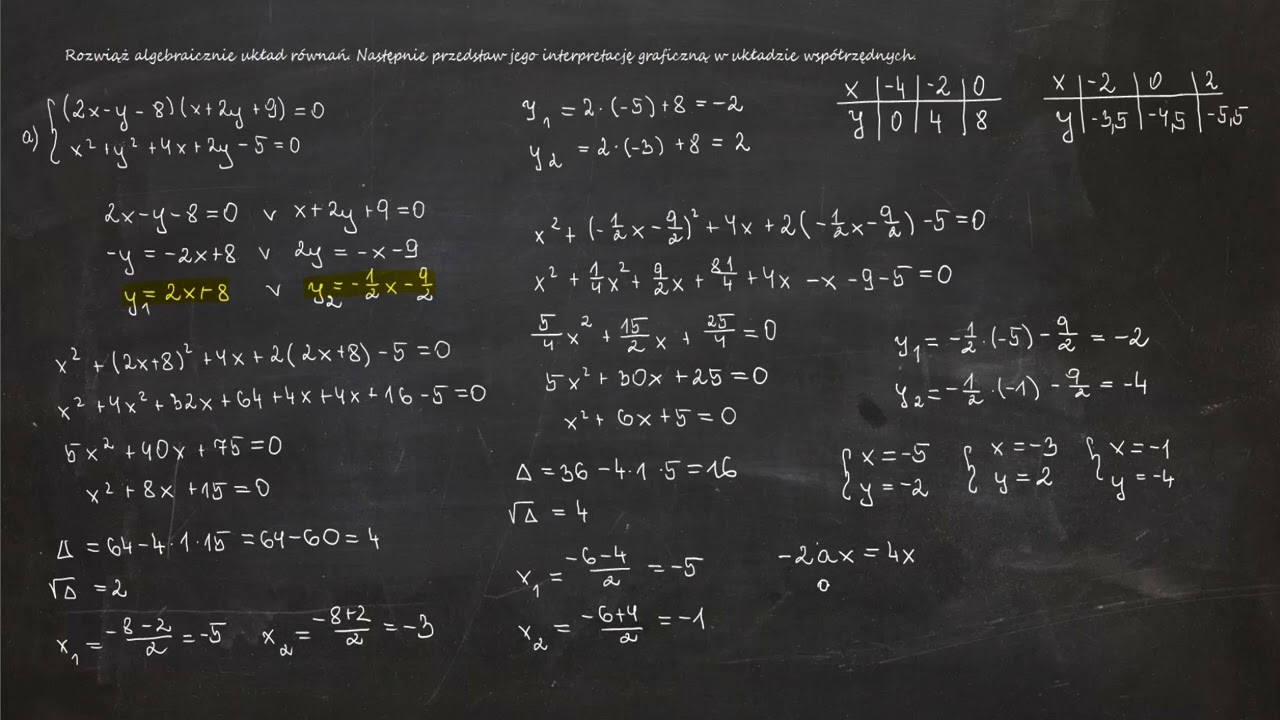 Rozwiąż algebraicznie układ równań. Następnie przedstaw jego interpretację graficzną w układzie współrzędnych.
a) { (2x-y-8)(x+2y+9)=0
x²+y²+4x+2y-5=0
2x-y-8=0 v x+2y+9=0
-y=-2x+8 v 2y=-x-9
y₁=2x+8 v y₂=-1/2x-9/2
x²+(2x+8)²+4x+2(2x+8)-5=0
x²+4x²+32x+64+4x+4x+16-5=0
5x²+40x+75=0
x²+8x+15=0
Δ=64-4·1·15=64-60=4
√Δ=2
x₁=(-8-2)/2=-5 x₂=(-8+2)/2=-3
y₁=2·(-5)+8=-2
y₂=2·(-3)+8=2
x²+(-1/2x-9/2)²+4x+2(-1/2x-9/2)-5=0
x²+1/4x²+9/2x+81/4+4x-x-9-5=0
5/4x²+15/2x+25/4=0
5x²+30x+25=0
x²+6x+5=0
Δ=36-4·1·5=16
√Δ=4
x₁=(-6-4)/2=-5
x₂=(-6+4)/2=-1
x | -4 | -2 | 0
y | 0 | 4 | 8
x | -2 | 0 | 2
y | -3,5 | -4,5 | -5,5
y₁=-1/2·(-5)-9/2=-2
y₂=-1/2·(-1)-9/2=-4
{ x=-5 { x=-3 { x=-1
y=-2 y=2 y=-4
-2ax=4x